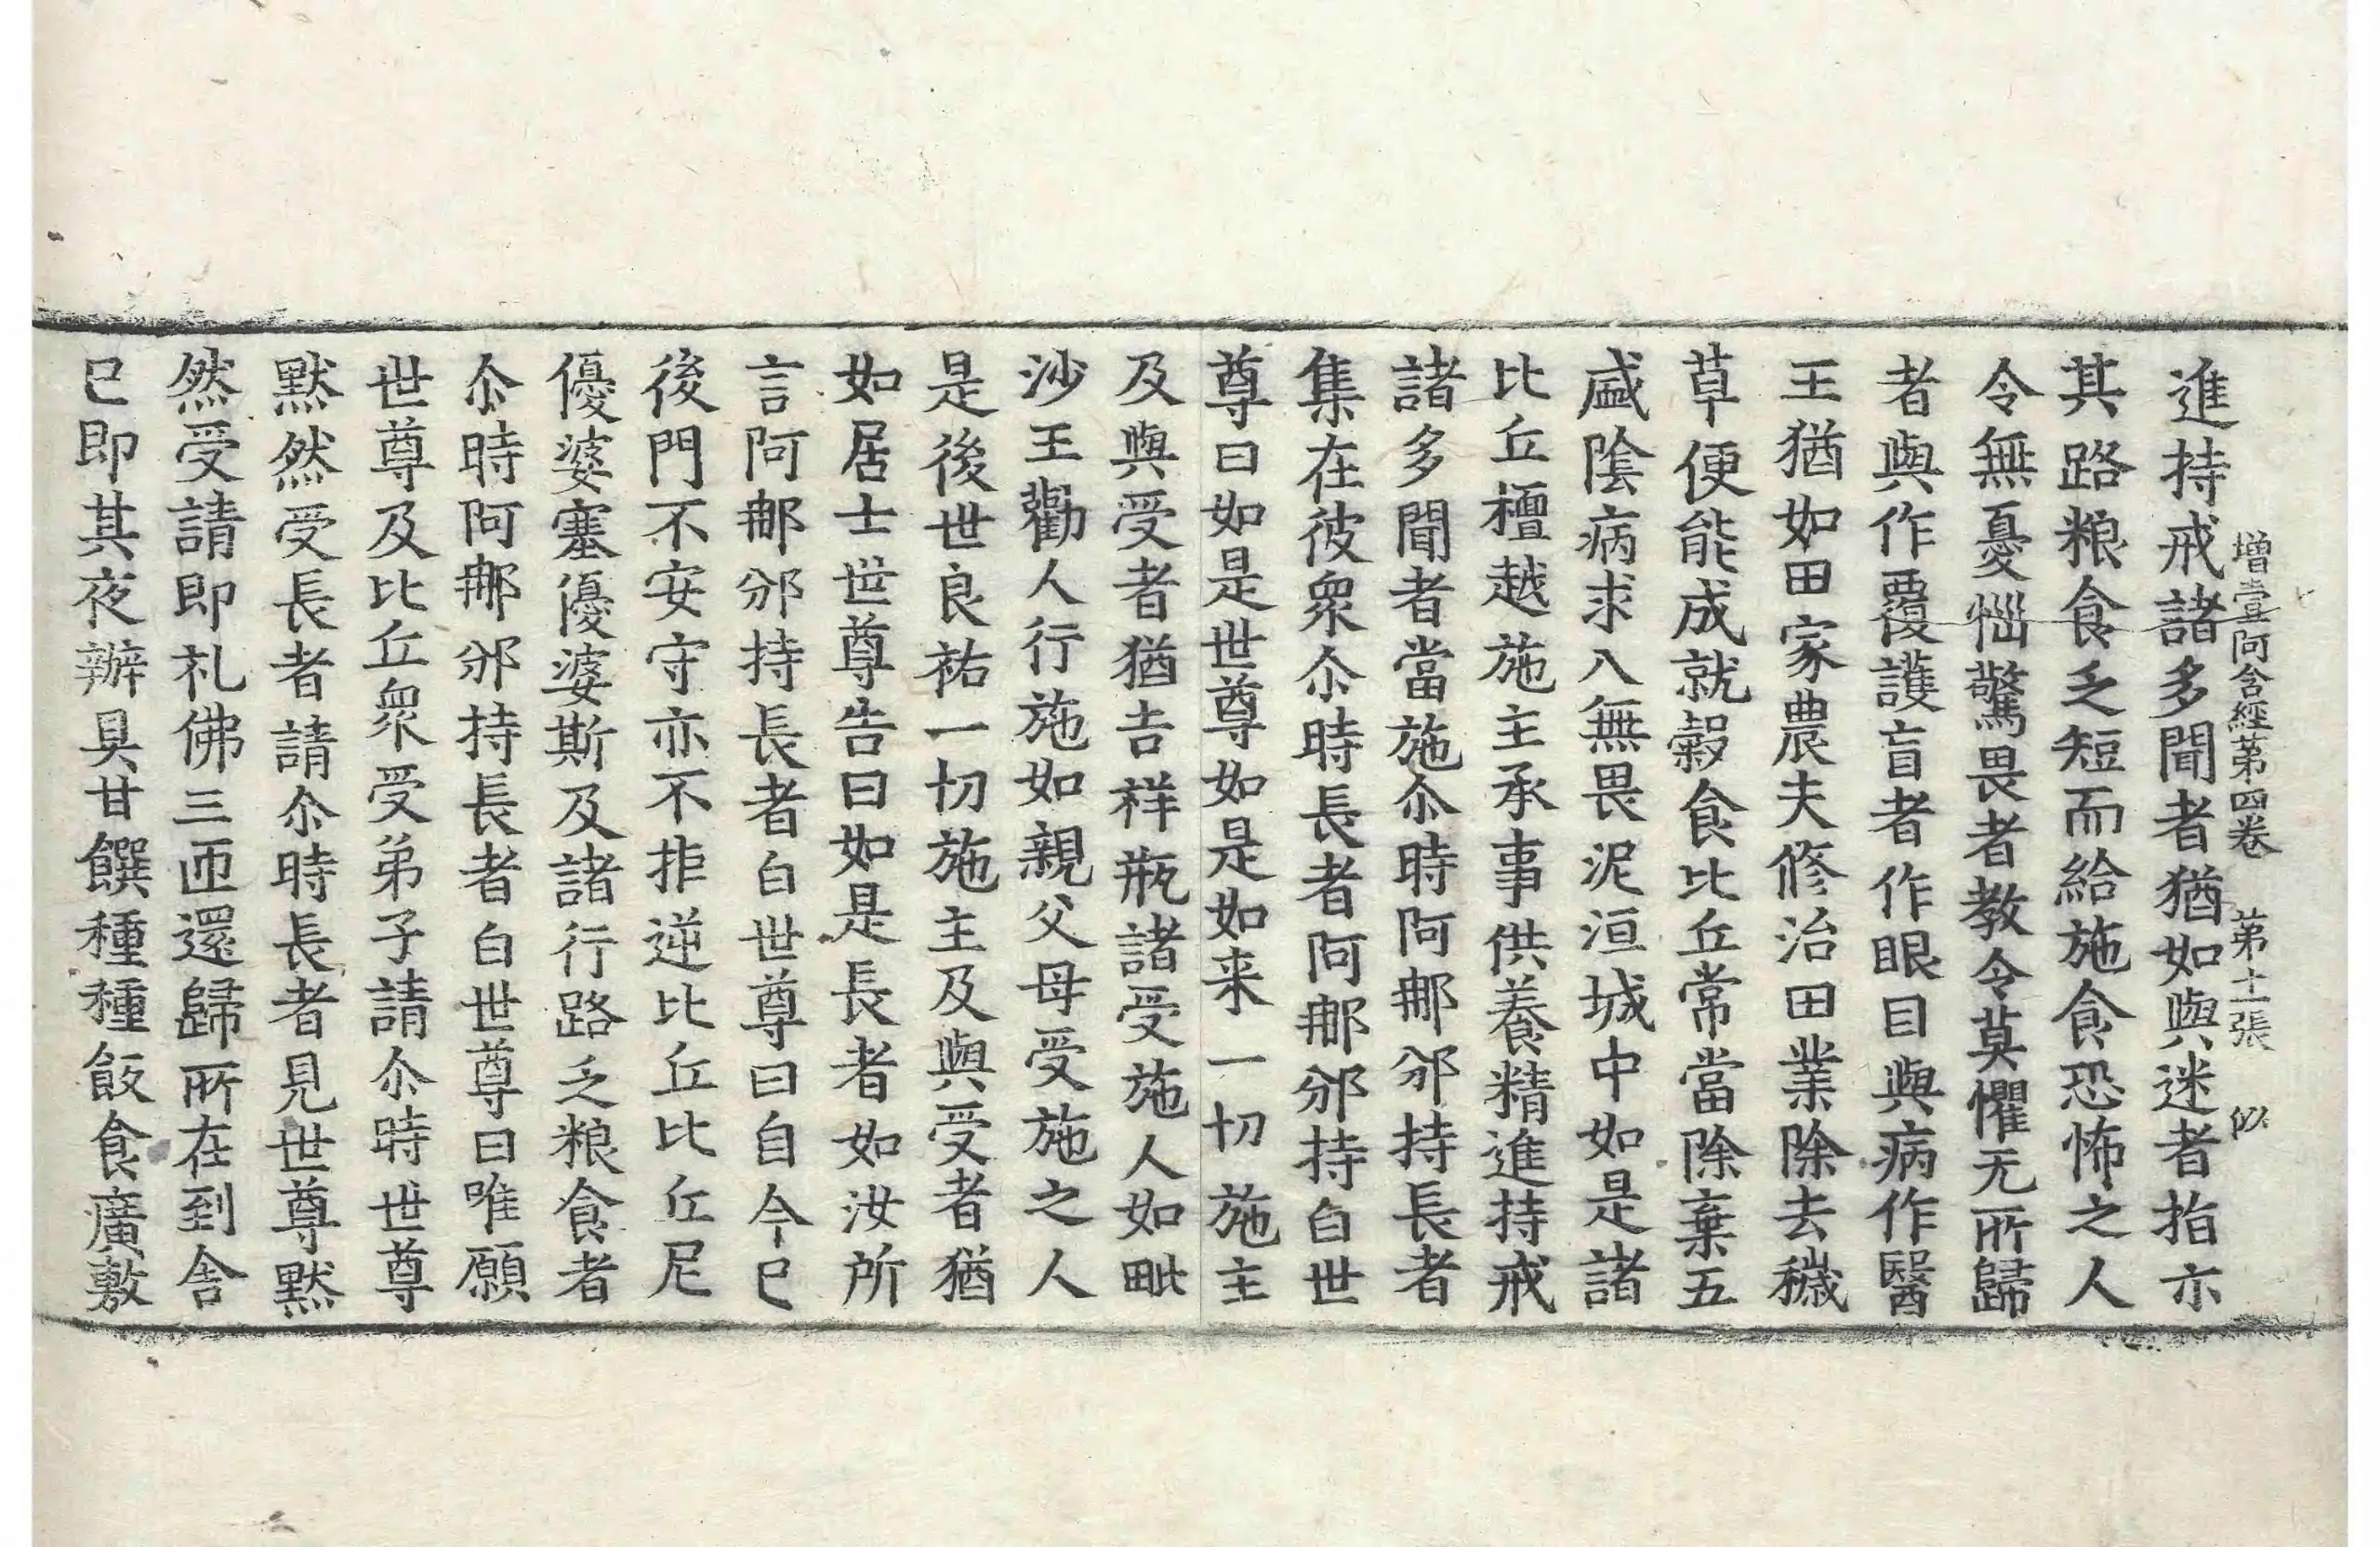 增壹阿含經第四卷　第十一張　似
進持戒諸多聞者猶如與迷者指示
其路粮食乏短而給施食恐怖之人
令無憂惱驚畏者教令莫懼无所歸
者與作覆護盲者作眼目與病作醫
王猶如田家農夫修治田業除去穢
草便能成就穀食比丘常當除棄五
盛陰病求入無畏泥洹城中如是諸
比丘檀越施主承事供養精進持戒
諸多聞者當施尒時阿那邠持長者
集在彼衆尒時長者阿那邠持白世
尊曰如是世尊如是如来一切施主
及與受者猶吉祥瓶諸受施人如毗
沙王勸人行施如親父母受施之人
是後世良祐一切施主及與受者猶
如居士世尊告曰如是長者如汝所
言阿那邠持長者白世尊曰自今已
後門不安守亦不拒逆比丘比丘尼
優婆塞優婆斯及諸行路乏粮食者
尒時阿那邠持長者白世尊曰唯願
世尊及比丘衆受弟子請尒時世尊
黙然受長者請尒時長者見世尊黙
然受請即礼佛三匝還歸所在到舍
已即其夜辦具甘饌種種飯食廣敷